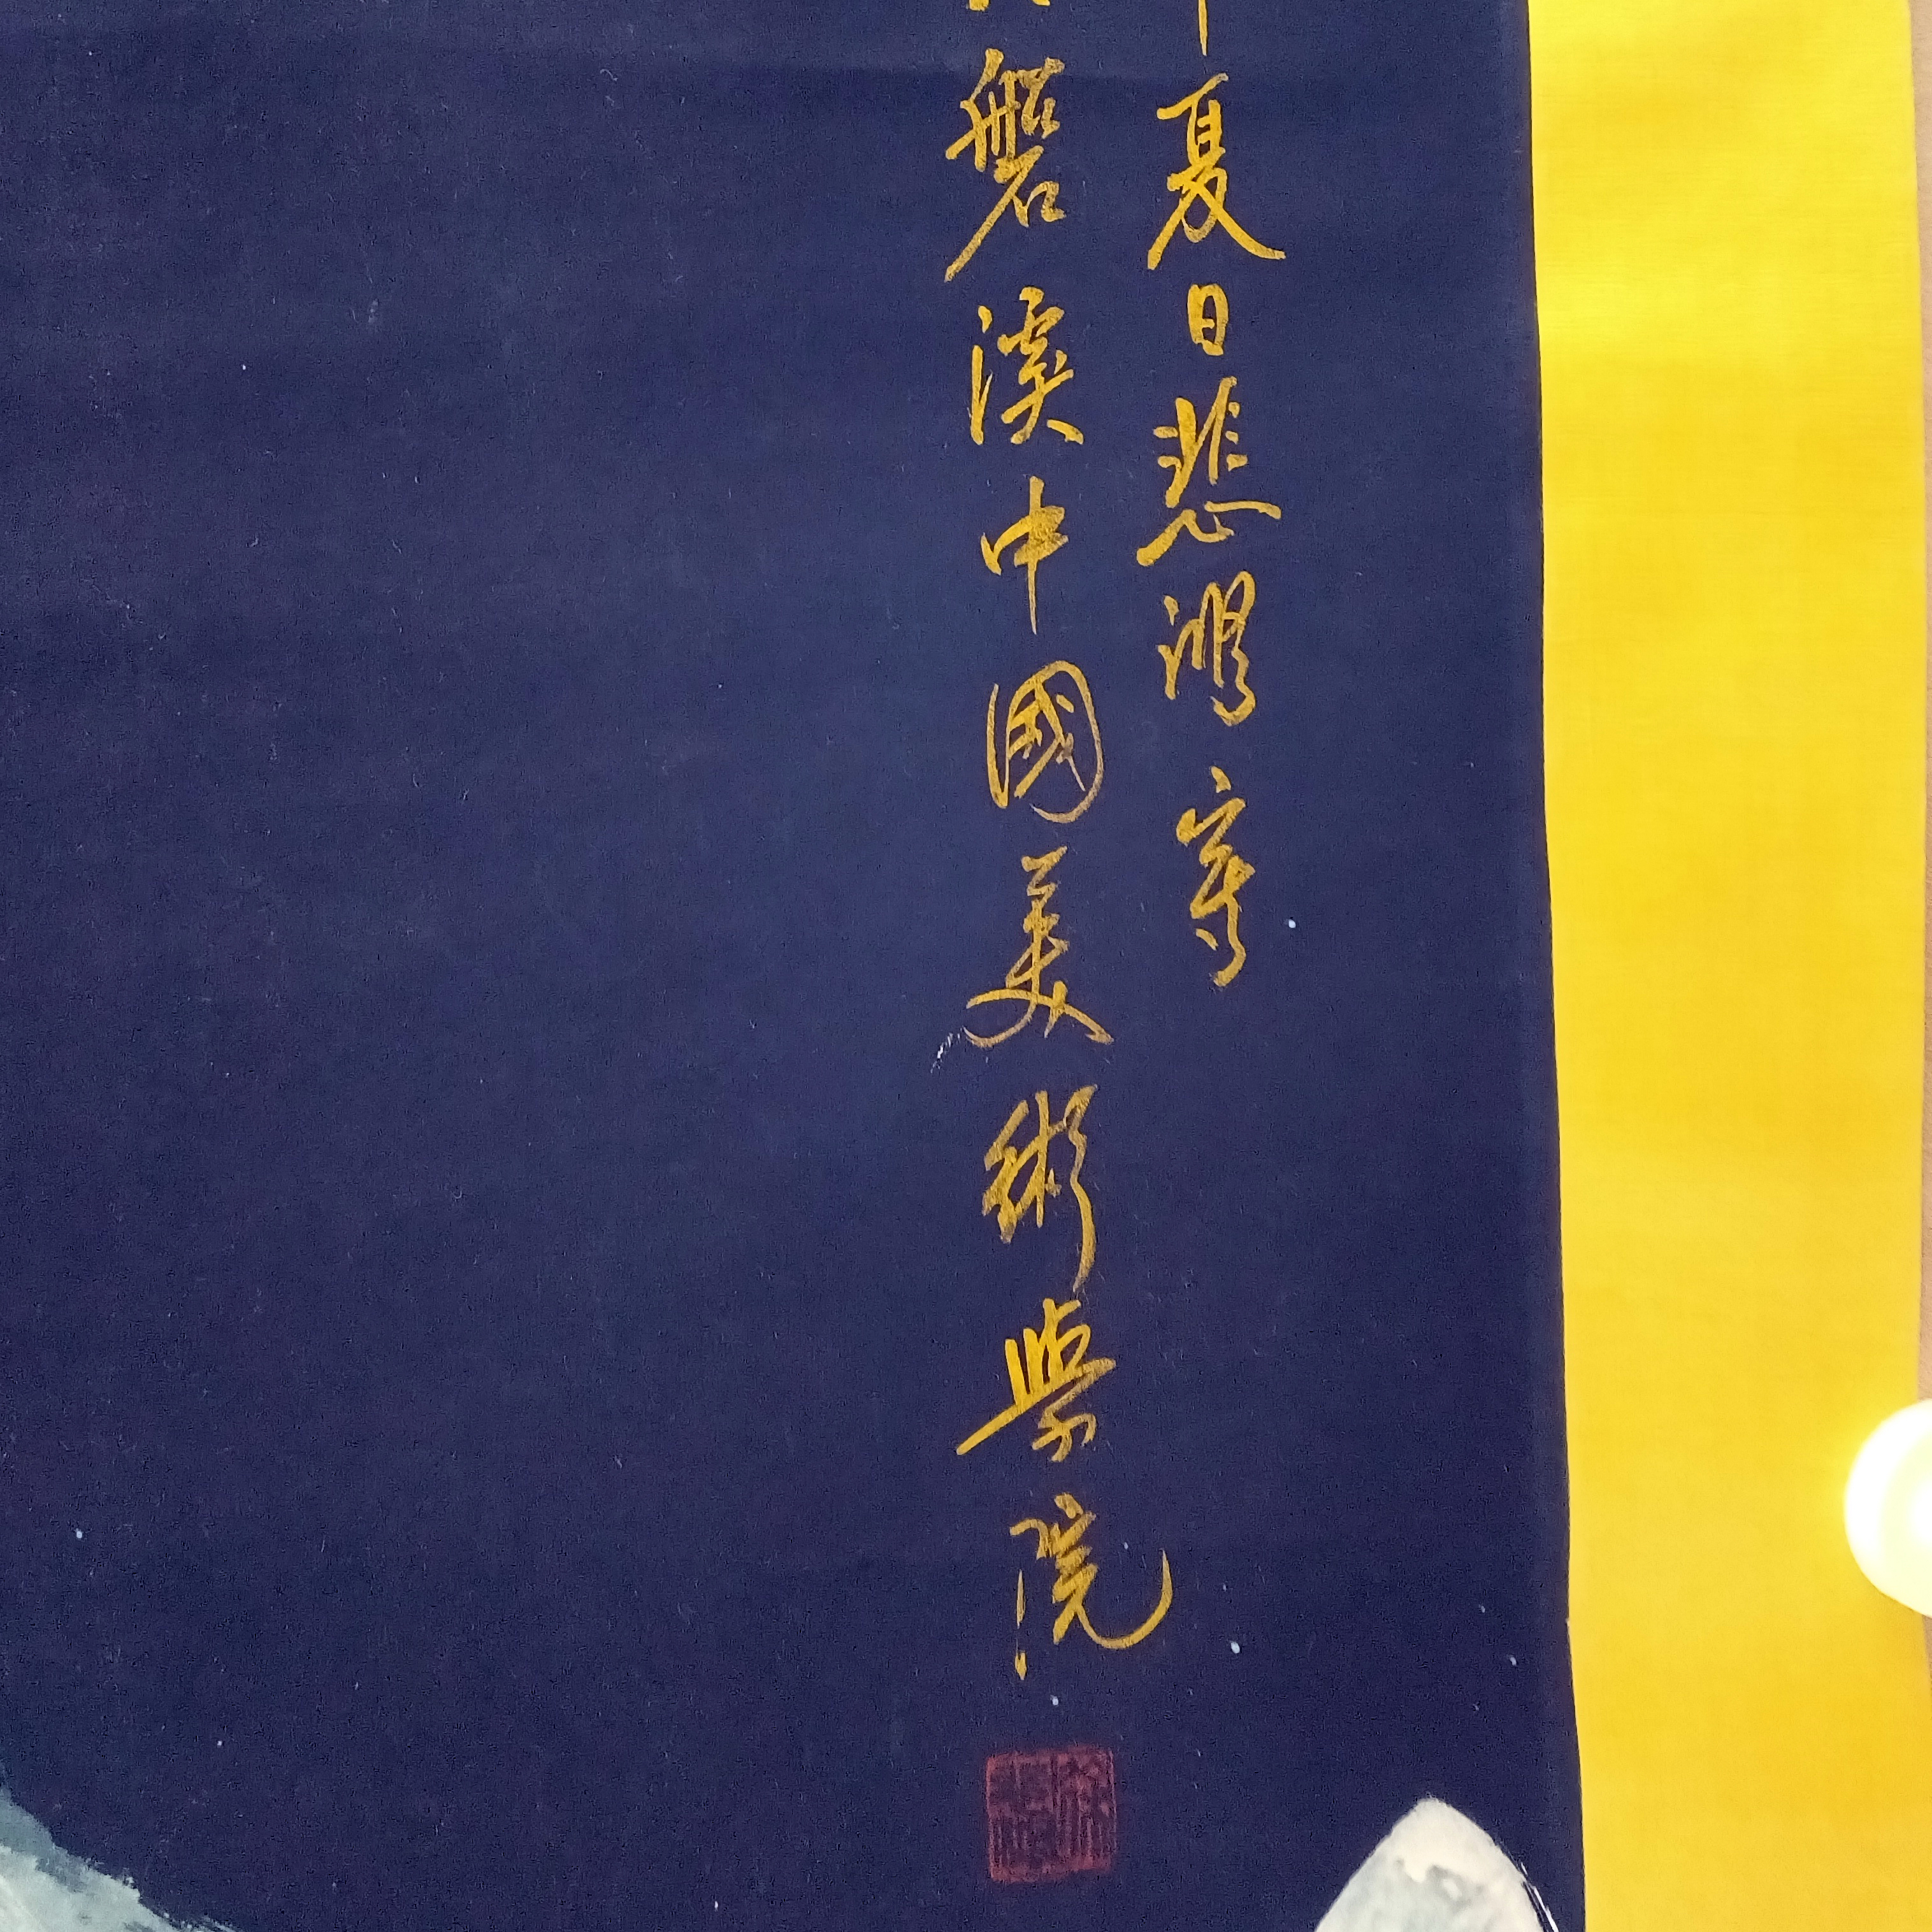 夏日悲鴻寫
磐溪中國美術學院